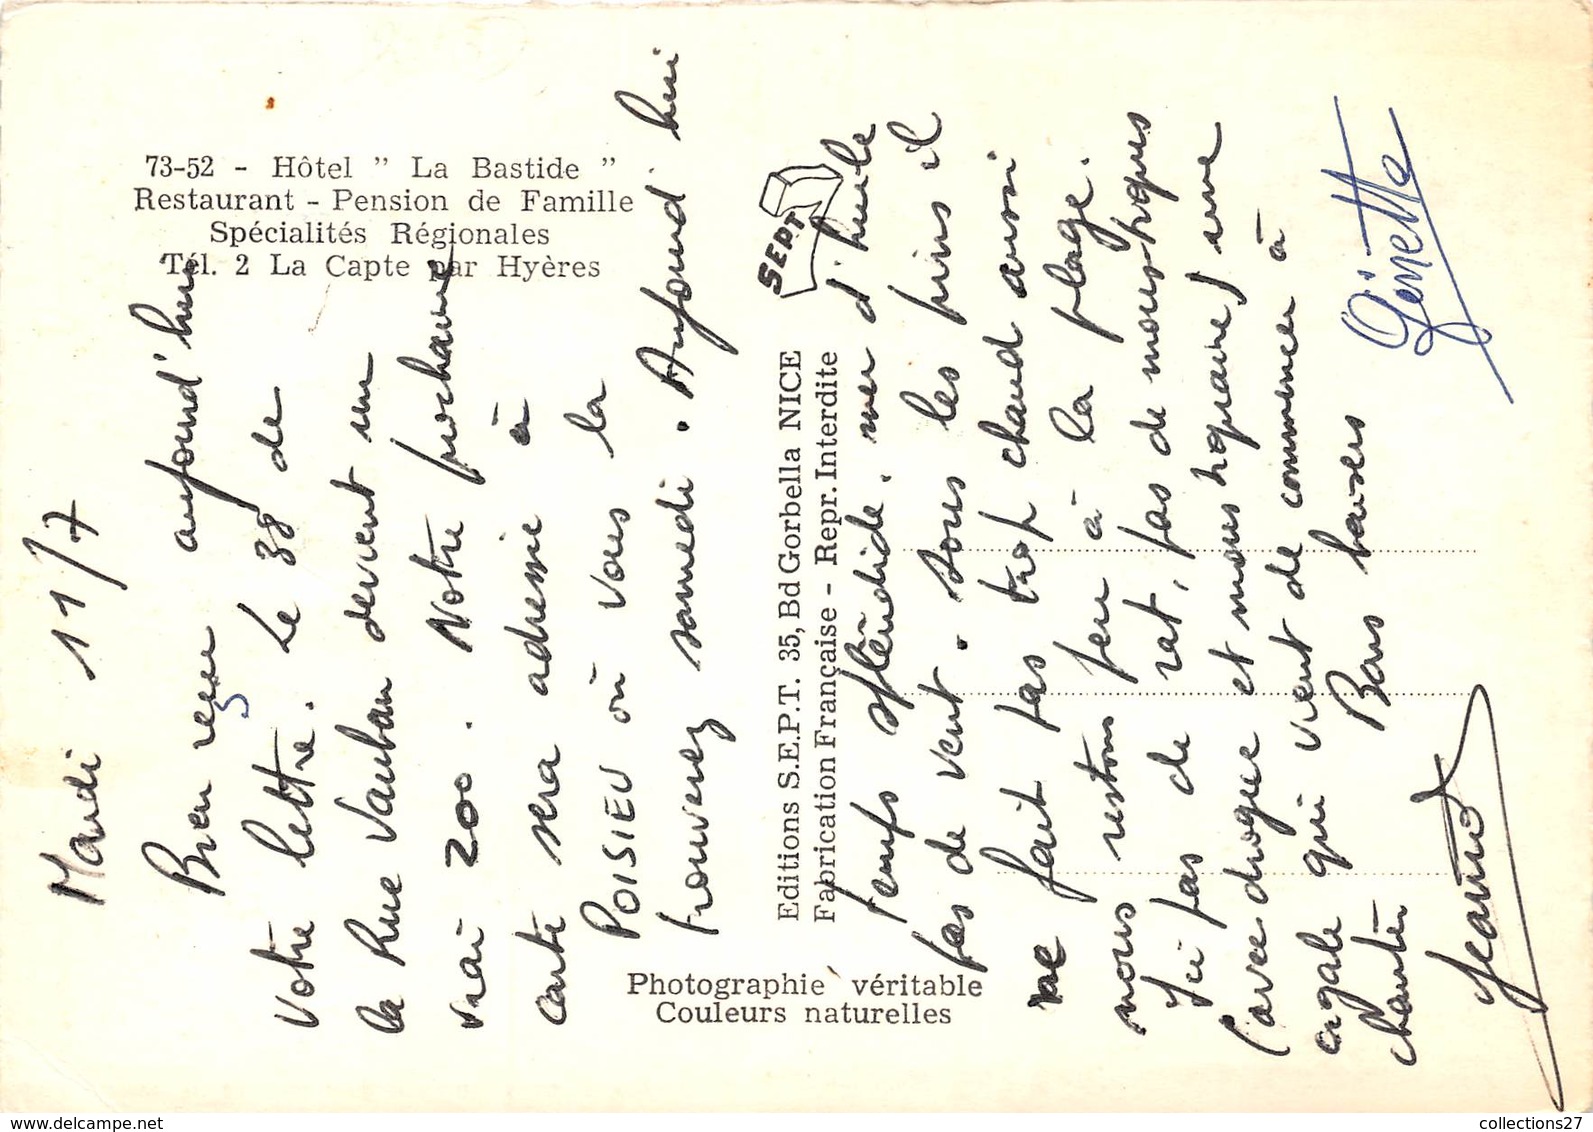 73-52 - Hôtel " La Bastide "
Restaurant - Pension de Famille
Spécialités Régionales
Tél. 2 La Capte par Hyères
SEPT
Editions S.E.P.T. 35, Bd Gorbella NICE
Fabrication Française - Repr. Interdite
Photographie véritable
Couleurs naturelles
Mardi 11/7
Bien reçu aujourd'hui
votre lettre. Le 38 de
la Rue Vauban devient un
vrai 200. Notre prochaine
carte sera adressée à
POISIEU où vous la
trouverez samedi. Aujourd'hui
temps splendide, mer d'huile
pas de vent. Sous les pins il
ne fait pas trop chaud aussi
nous restons peu à la plage.
Ici pas de rat, pas de moustiques
(avec drogue et moustiquaire) une
cigale qui vient de commencer à
chanter Bons baisers
Jeannot
Ginette
collections27
www.delcampe.net